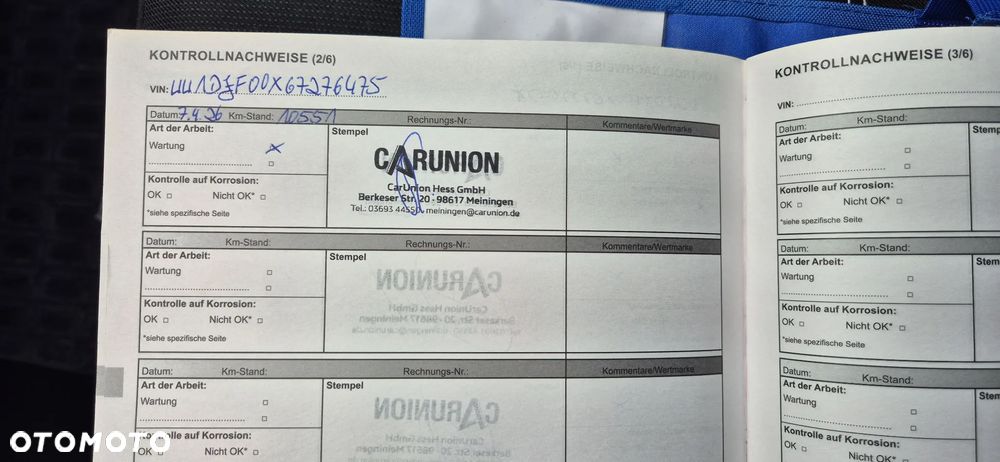 KONTROLLNACHWEISE (2/6)
VIN: UU1DJF00X67276475
Datum: 7.4.26 Km-Stand: 10551 Rechnungs-Nr.: Kommentare/Wertmarke
Art der Arbeit: Stempel
Wartung
CARUNION
CarUnion Hess GmbH
Berkeser Str. 20 · 98617 Meiningen
Tel.: 03693 4455 meiningen@carunion.de
Kontrolle auf Korrosion:
OK Nicht OK*
*siehe spezifische Seite
Datum: Km-Stand: Rechnungs-Nr.: Kommentare/Wertmarke
Art der Arbeit: Stempel
Wartung
Kontrolle auf Korrosion:
OK Nicht OK*
*siehe spezifische Seite
Datum: Km-Stand: Rechnungs-Nr.: Kommentare/Wertmarke
Art der Arbeit: Stempel
Wartung
Kontrolle auf Korrosion:
OK Nicht OK*
KONTROLLNACHWEISE (3/6)
VIN:
Datum: Km-Stand:
Art der Arbeit: Stemp
Wartung
Kontrolle auf Korrosion:
OK Nicht OK*
*siehe spezifische Seite
Datum: Km-Stand:
Art der Arbeit: Stem
Wartung
Kontrolle auf Korrosion:
OK Nicht OK*
*siehe spezifische Seite
Datum: Km-Stand:
Art der Arbeit: Sten
Wartung
Kontrolle auf Korrosion:
OK Nicht OK*
OTOMOTO